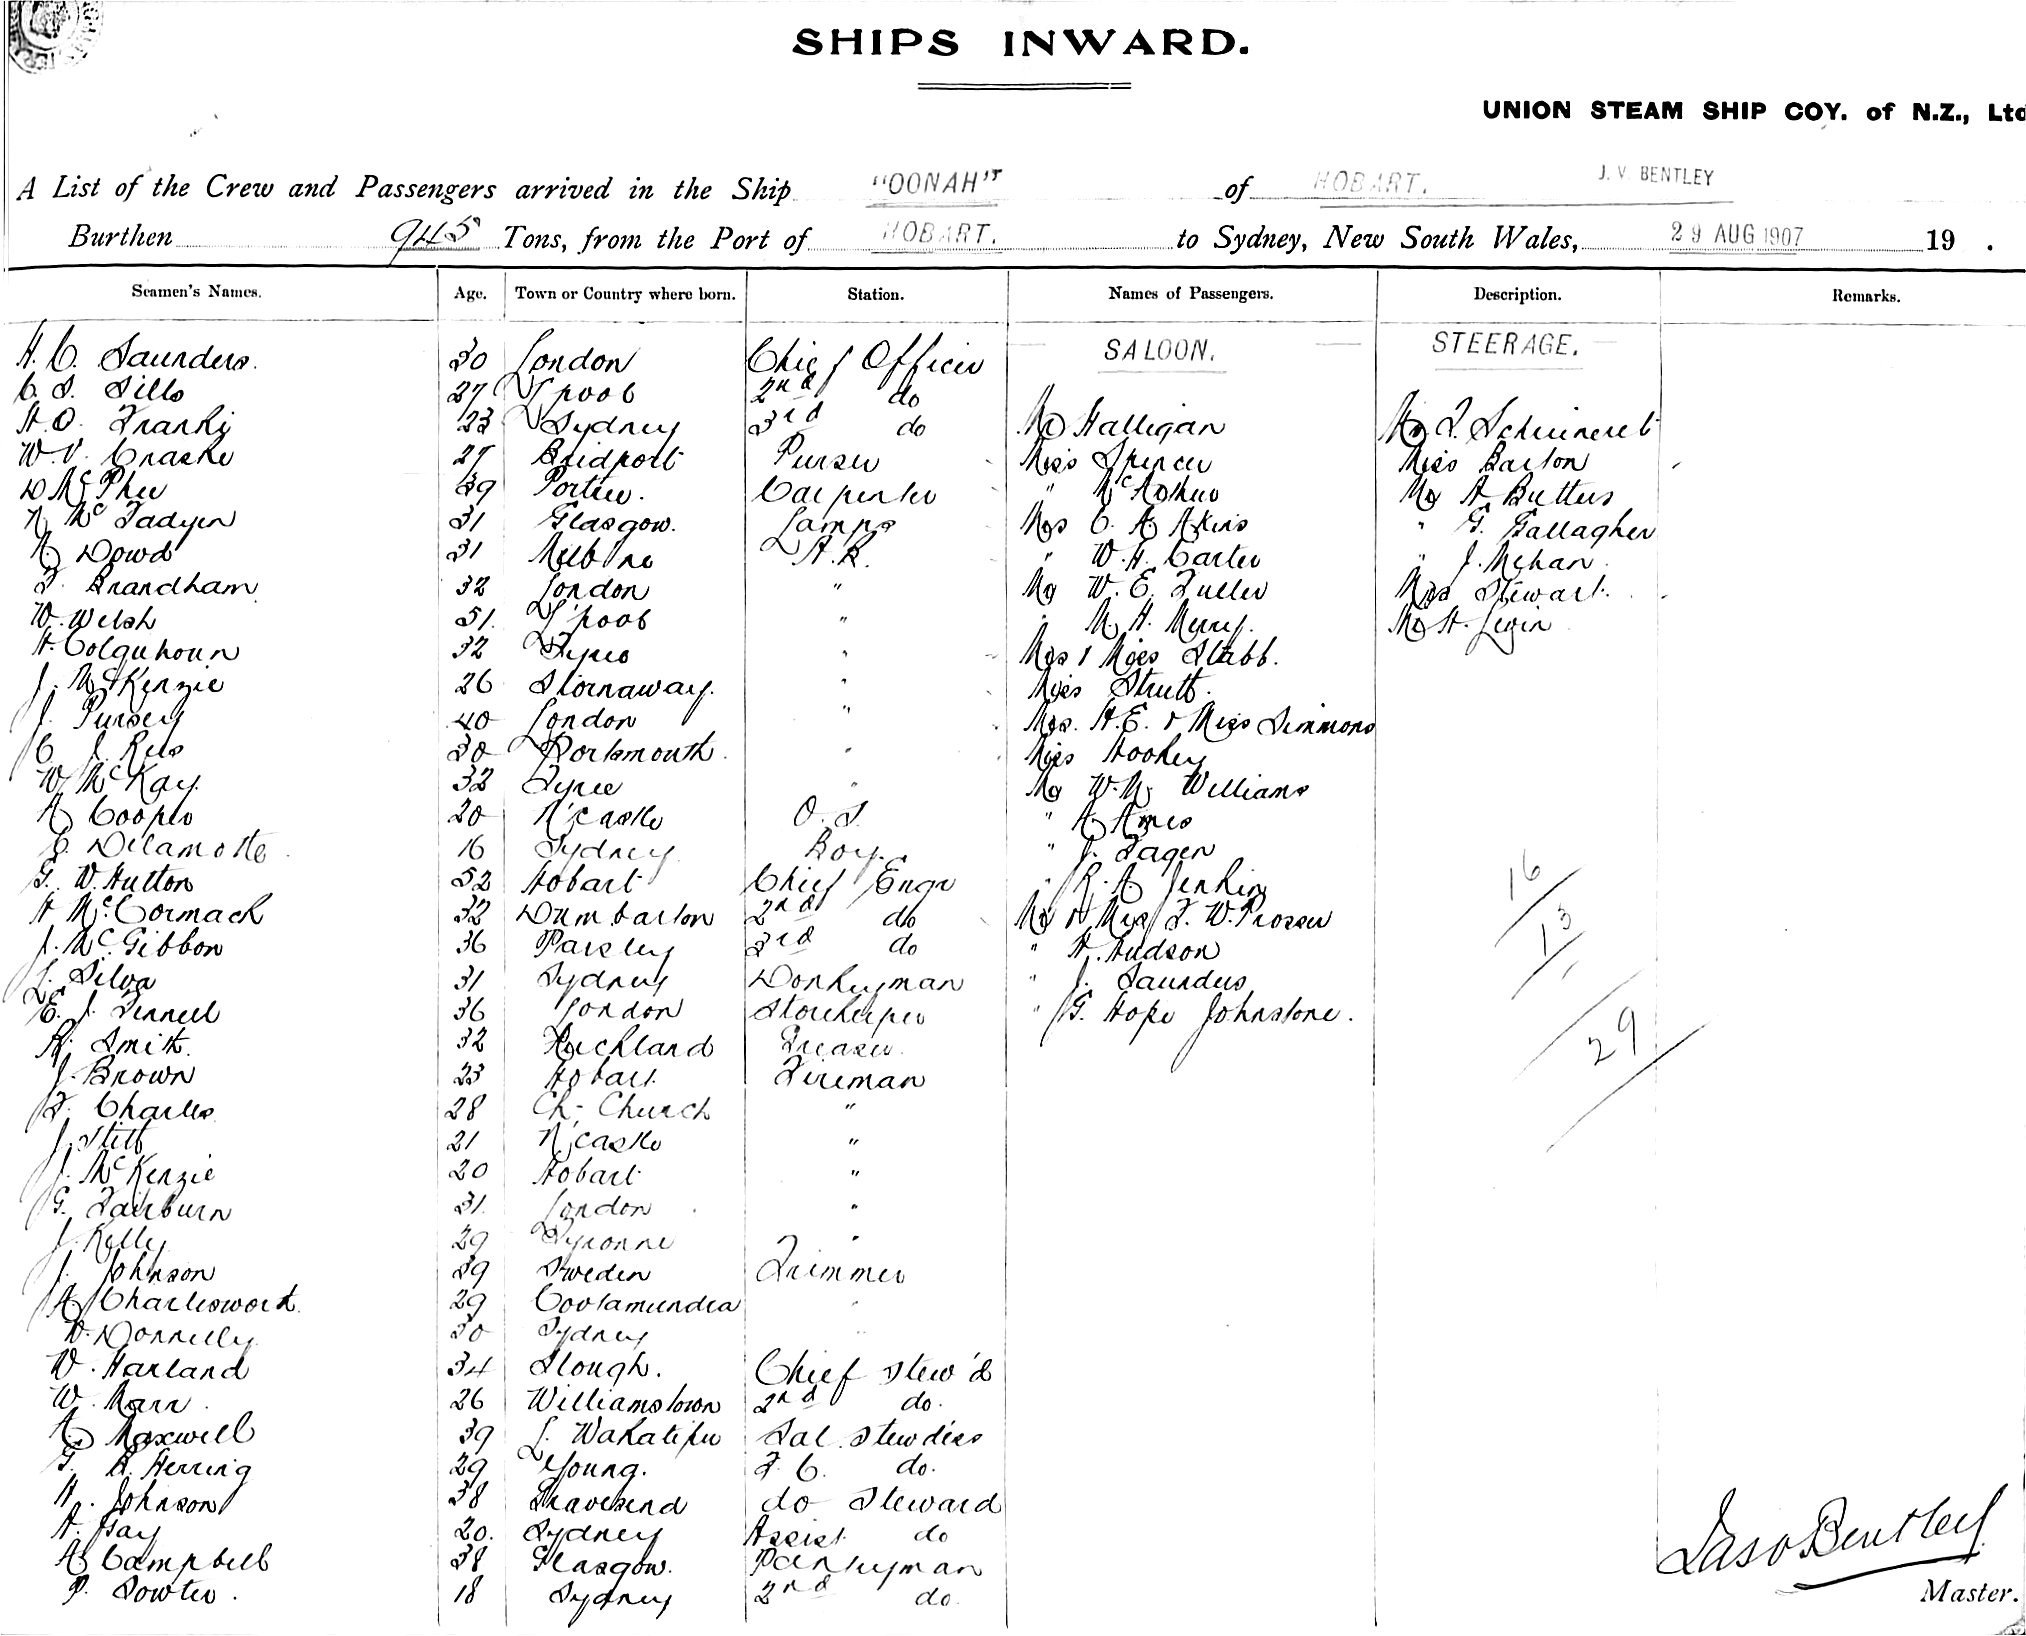 SHIPS INWARD.
UNION STEAM SHIP COY. of N.Z., Ltd
A List of the Crew and Passengers arrived in the Ship "OONAH" of HOBART. J. V. BENTLEY
Burthen 945 Tons, from the Port of HOBART. to Sydney, New South Wales, 29 AUG 1907 19 .
Seamen's Names. Age. Town or Country where born. Station. Names of Passengers. Description. Remarks.
SALOON. STEERAGE.
H. C. Saunders. 30 London Chief Officer
C. S. Sills 27 L'pool 2nd do
H. O. 23 Sydney 3rd do Mr Halligan Mr F.
W. V. Craske 27 Bridport Purser Miss Spencer Miss Barton
D McPhee 39 Portree. Carpenter " McArthur Mr A Butters
N McFadyen 31 Glasgow. Lamps Mrs C. A Akins " G. Gallagher
A Dowd 31 Melbne A.B. " W. H. Carter " J. Mehan.
F. Brandham 32 London " Mr W. E. Fuller Mrs Stewart.
W. Welsh 51. L'pool " " M. H. Merry. Mr H. Levin
H. Colquhoun 32 Tyree " Mrs & Miss Stabb.
J. McKenzie 26 Stornaway. " Miss Strutt.
J. Pursey 40 London " Mrs. H. E. & Miss Simmons
C J. Rees 30 Portsmouth. " Miss Hookey
W McKay. 32 Tyree " Mr W. M. Williams
A Cooper 20 N'castle O. S. " A Ames
E. Delamotte 16 Sydney. Boy. " J. Fagen
G. W. Hutton 52 Hobart Chief Engr " R. A Jenkin
H McCormack 32 Dumbarton 2nd do Mr & Mrs F. W. Prosser
J. McGibbon 36 Paisley 3rd do " H. Hudson
L. Silva 31 Sydney Donkeyman " J. Saunders
E. J. Fennell 36 London Storekeeper " G. Hope Johnstone.
R. Smith. 32 Auckland Greaser.
J. Brown 23 Hobart. Fireman
F. Charles 28 Ch. Church "
J. Stitt 21 N'castle "
J. McKenzie 20 Hobart "
G. Fairburn 31. London "
J. Kelly 29 Tyronne "
J. Johnson 39 Sweden Trimmer
A Charlesworth. 29 Cootamundra "
W. Donnelly. 30 Sydney "
W. Harland 34 Slough. Chief Stew'd
W. Marr. 26 Williamstown 2nd do.
A Maxwell 39 L. Wakatipu Sal. Stew'dess
G. R. Herring 29 Young. F. C. do.
H. Johnson 38 Gravesend do Steward
H. Gay 20. Sydney Assist. do
A Campbell 38 Glasgow. Pantryman
P. Sowter. 18 Sydney 2nd do.
16
13
29
Jas V Bentley
Master.